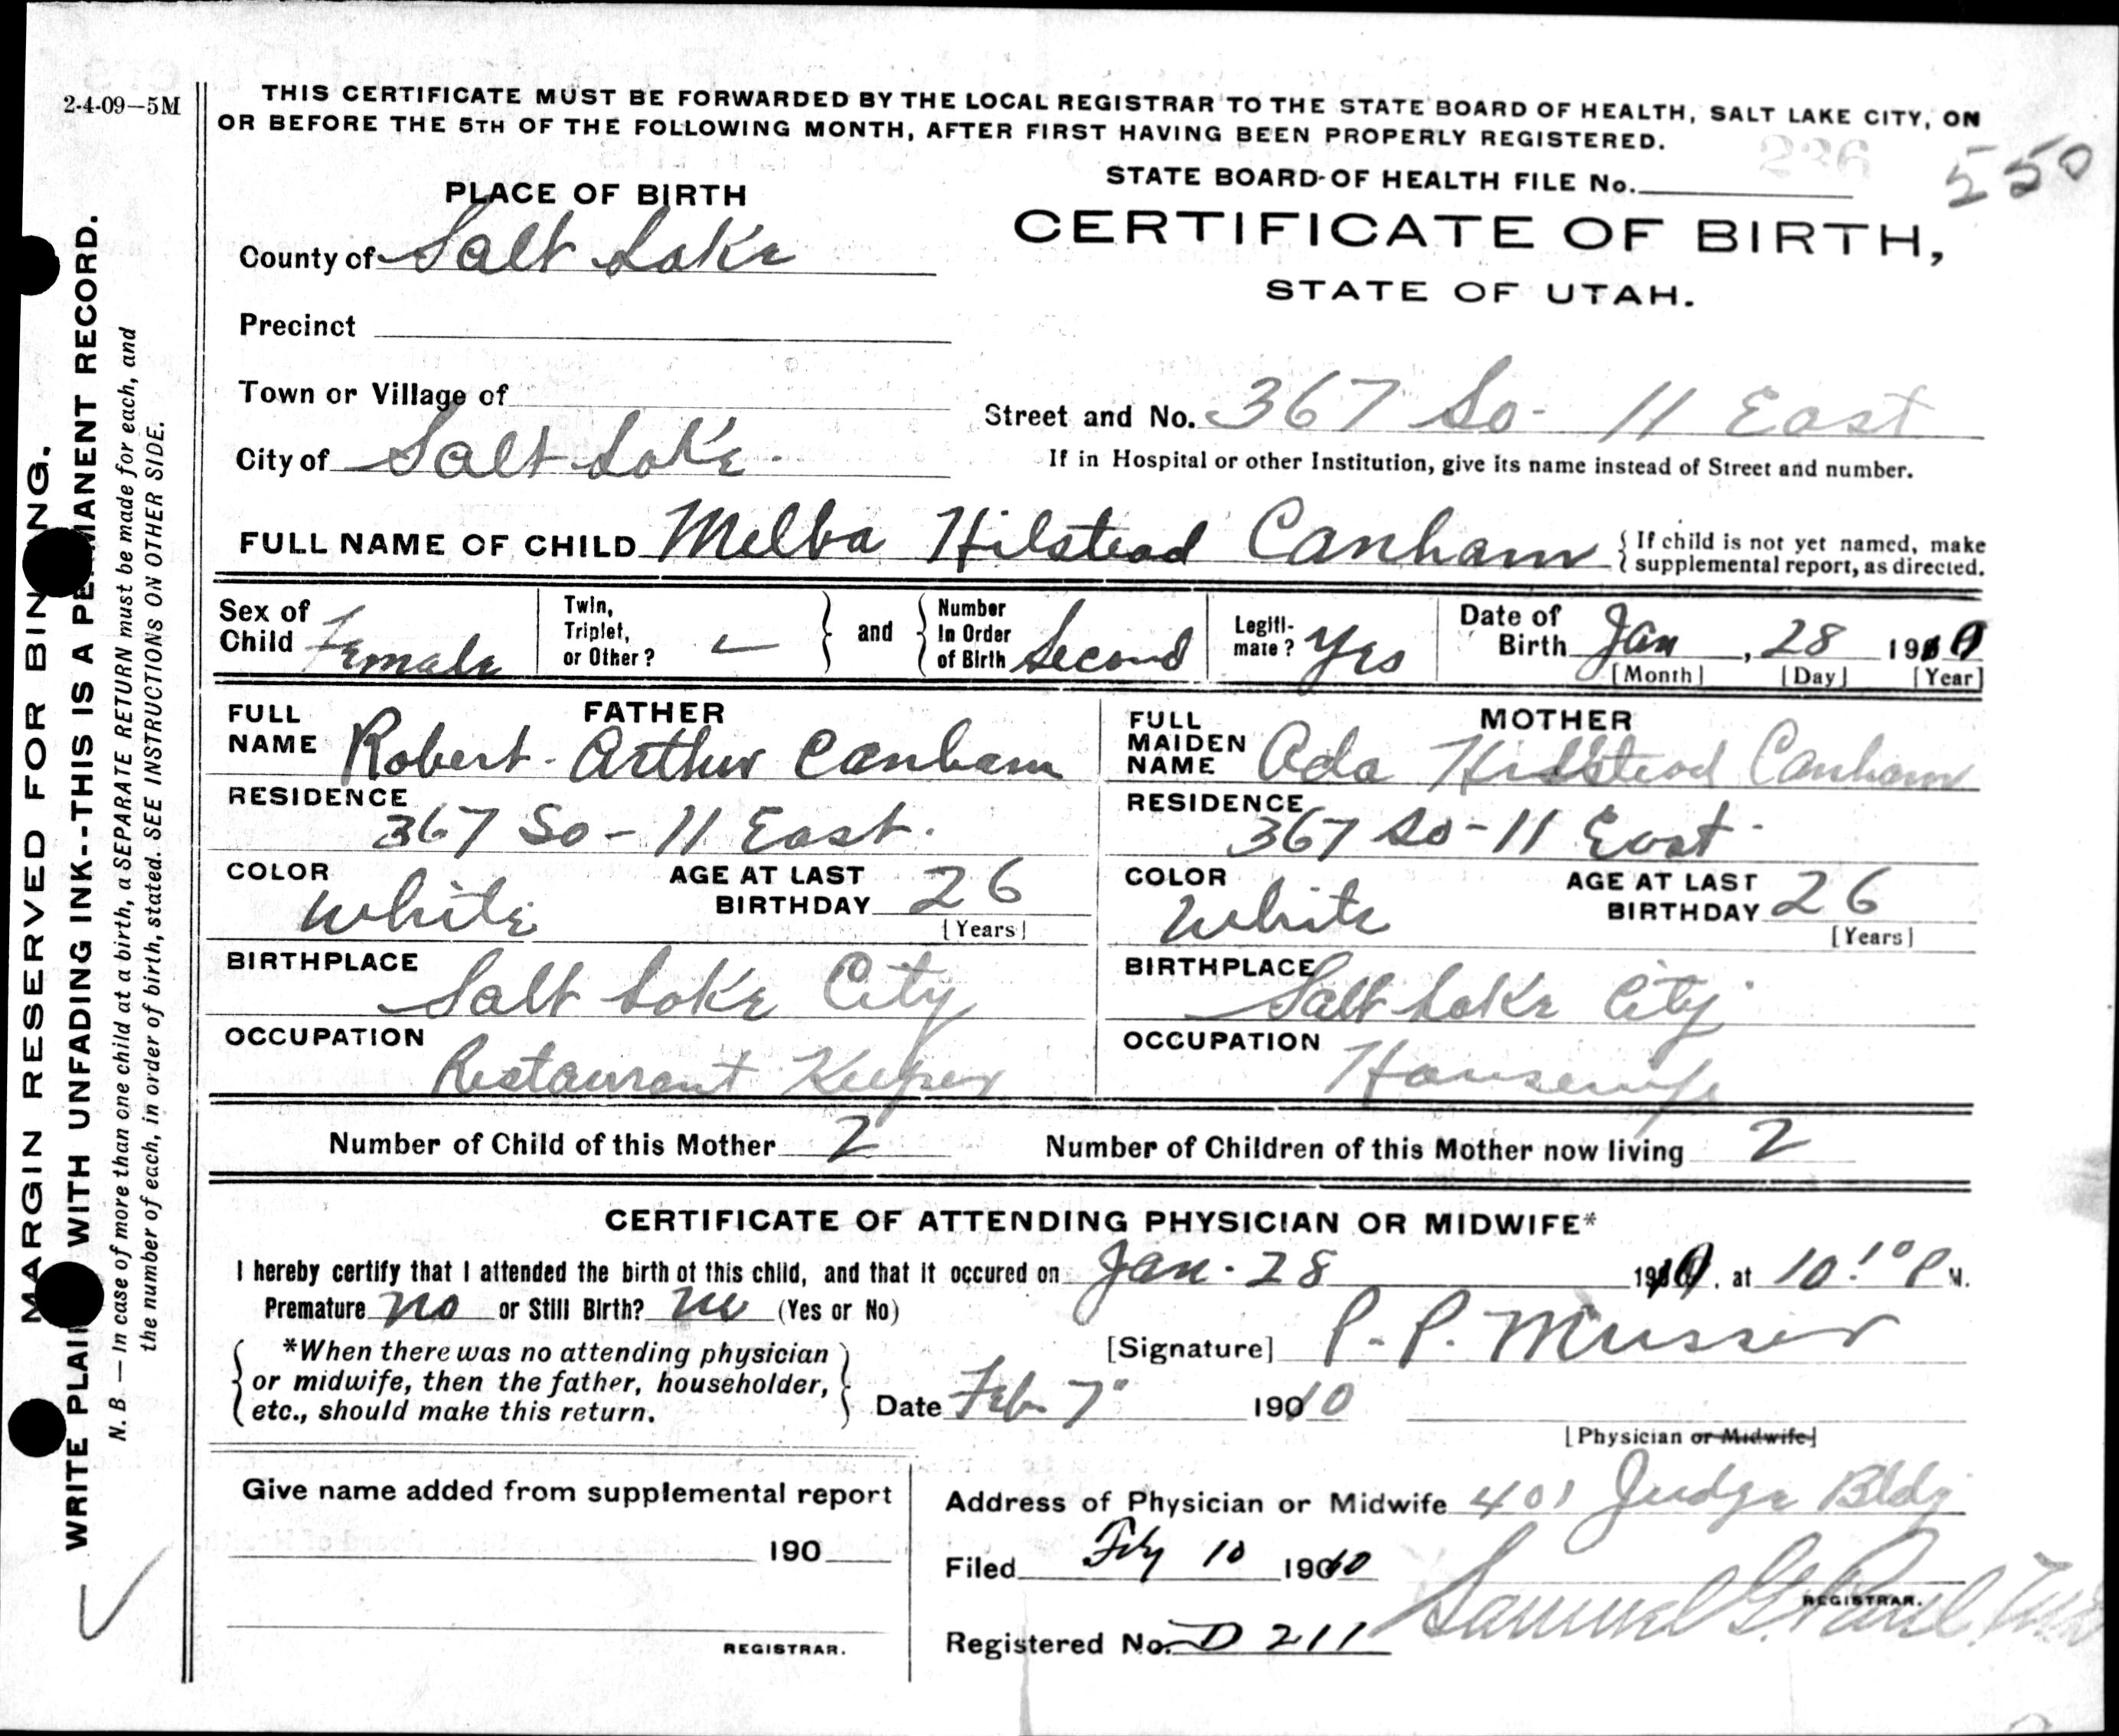 2-4-09—5M
THIS CERTIFICATE MUST BE FORWARDED BY THE LOCAL REGISTRAR TO THE STATE BOARD OF HEALTH, SALT LAKE CITY, ON
OR BEFORE THE 5TH OF THE FOLLOWING MONTH, AFTER FIRST HAVING BEEN PROPERLY REGISTERED.
236
550
STATE BOARD OF HEALTH FILE No.
CERTIFICATE OF BIRTH,
STATE OF UTAH.
PLACE OF BIRTH
County of Salt Lake
Precinct
Town or Village of
City of Salt Lake.
Street and No. 367 So- 11 East
If in Hospital or other Institution, give its name instead of Street and number.
FULL NAME OF CHILD Melba Hilstead Canham { If child is not yet named, make
supplemental report, as directed.
Sex of Child Female
Twin, Triplet, or Other? —
and
Number In Order of Birth Second
Legitimate? Yes
Date of Birth Jan, 28 1910
[Month] [Day] [Year]
FATHER
FULL NAME Robert. Arthur Canham
RESIDENCE 367 So - 11 East.
COLOR White
AGE AT LAST BIRTHDAY 26
[Years]
BIRTHPLACE Salt Lake City
OCCUPATION Restaurant Keeper
MOTHER
FULL MAIDEN NAME Ada Hilstead Canham
RESIDENCE 367 So - 11 East.
COLOR White
AGE AT LAST BIRTHDAY 26
[Years]
BIRTHPLACE Salt Lake City
OCCUPATION Housewife
Number of Child of this Mother 2 Number of Children of this Mother now living 2
CERTIFICATE OF ATTENDING PHYSICIAN OR MIDWIFE*
I hereby certify that I attended the birth of this child, and that it occured on Jan. 28 1910, at 10:10 P M.
Premature No or Still Birth? No (Yes or No)
*When there was no attending physician
or midwife, then the father, householder,
etc., should make this return.
[Signature] P. P. Musser
Date Feb 7" 19010
[Physician or Midwife]
Give name added from supplemental report
190
REGISTRAR.
Address of Physician or Midwife 401 Judge Bldg
Filed Feby 10 1910
Samuel G. Paul
REGISTRAR.
Registered No. D 211
MARGIN RESERVED FOR BINDING.
WRITE PLAINLY WITH UNFADING INK--THIS IS A PERMANENT RECORD.
N. B.—In case of more than one child at a birth, a SEPARATE RETURN must be made for each, and
the number of each, in order of birth, stated. SEE INSTRUCTIONS ON OTHER SIDE.